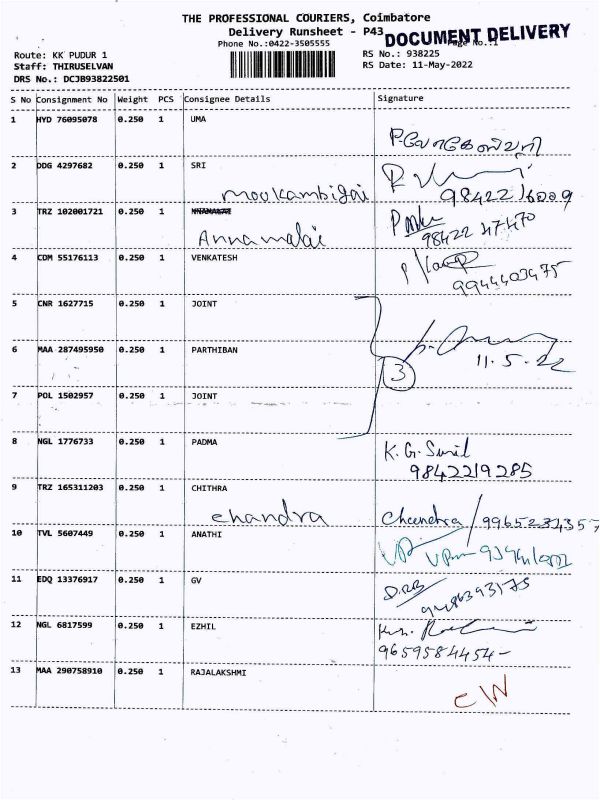 THE PROFESSIONAL COURIERS, Coimbatore
Delivery Runsheet - P43
DOCUMENT DELIVERY
Phone No.:0422-3505555
Page No.:1
Route: KK PUDUR 1
RS No.: 938225
Staff: THIRUSELVAN
RS Date: 11-May-2022
DRS No.: DCJB93822501
S No Consignment No Weight PCS Consignee Details Signature
1 HYD 76095078 0.250 1 UMA
2 DDG 4297682 0.250 1 SRI
Mookambigai
98422 16009
3 TRZ 102001721 0.250 1
Annamalai
98422 47470
4 COM 55176113 0.250 1 VENKATESH
9944403475
5 CNR 1627715 0.250 1 JOINT
6 MAA 287495950 0.250 1 PARTHIBAN
11.5.22
3
7 POL 1502957 0.250 1 JOINT
8 NGL 1776733 0.250 1 PADMA
K.G. Sunil
9842219285
9 TRZ 165311203 0.250 1 CHITHRA
chandra
Chandra / 9965234357
10 TVL 5607449 0.250 1 ANATHI
11 EDQ 13376917 0.250 1 GV
9486393175
12 NGL 6817599 0.250 1 EZHIL
9659584454-
13 MAA 290758910 0.250 1 RAJALAKSHMI
C/W